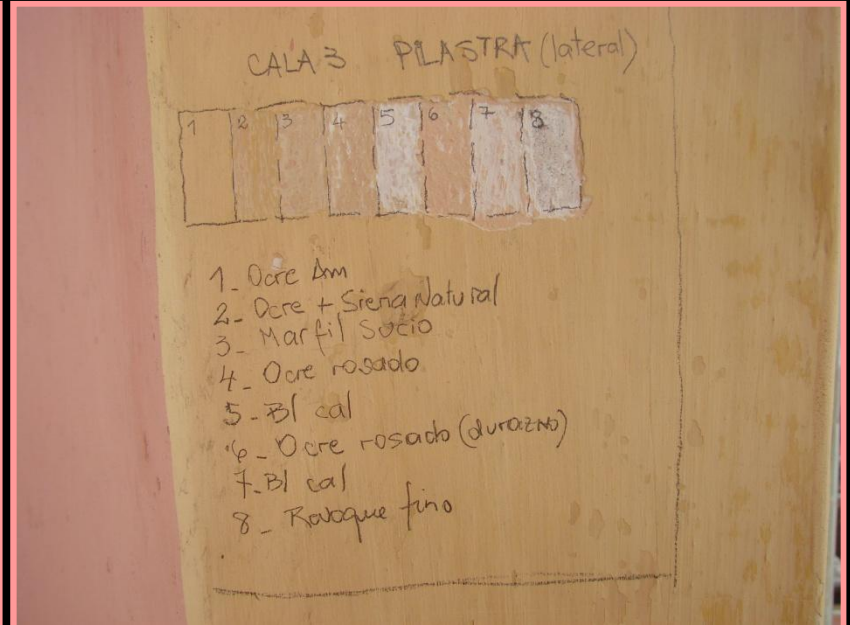 CALA 3 PILASTRA (lateral)
1 2 3 4 5 6 7 8
1_ Ocre Am
2_ Ocre + Siena Natural
3_ Marfil Sucio
4_ Ocre rosado
5_Bl cal
6_ Ocre rosado (durazno)
7_Bl cal
8_ Revoque fino